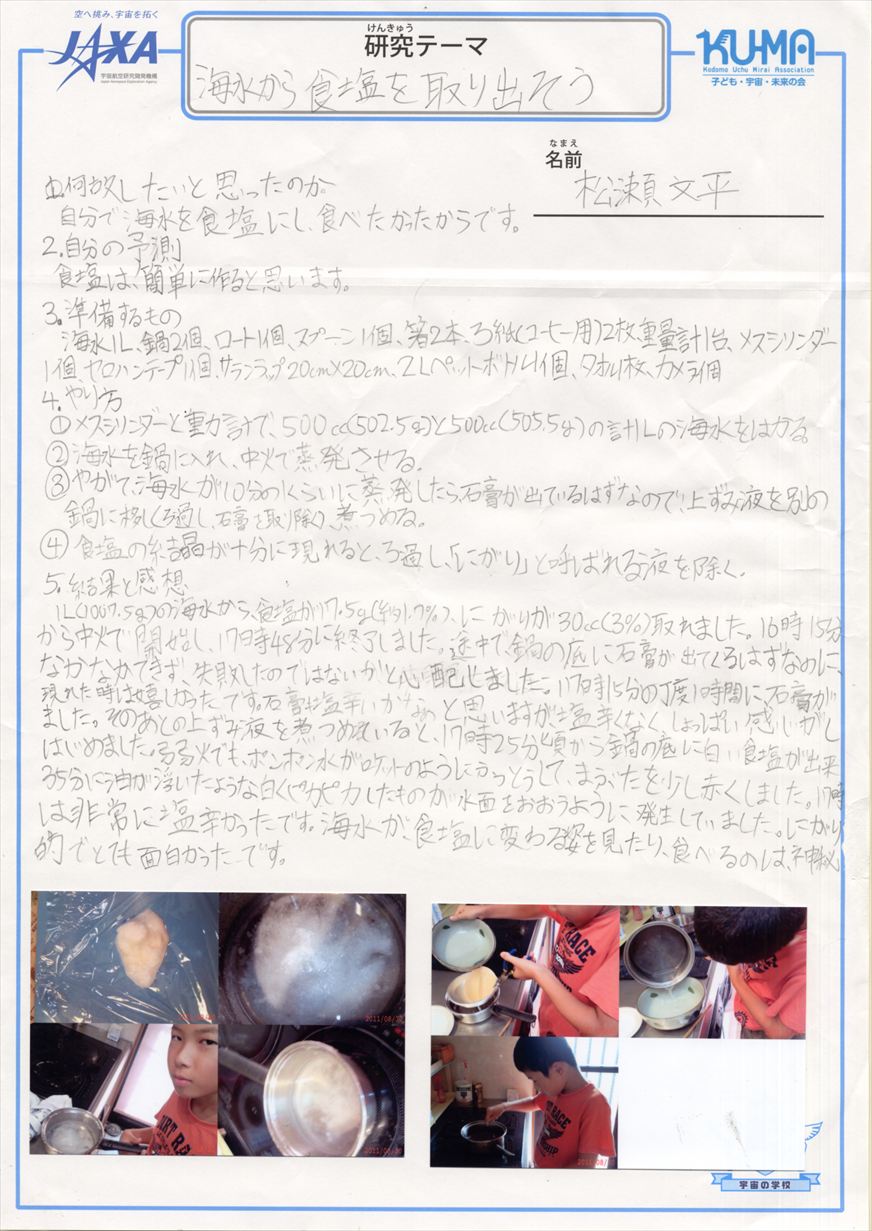 空へ挑み、宇宙を拓く
JAXA
宇宙航空研究開発機構
Japan Aerospace Exploration Agency
けんきゅう
研究テーマ
海水から食塩を取り出そう
KU-MA
Kodomo Uchu Mirai Association
子ども・宇宙・未来の会
なまえ
名前
松瀬文平
1.何故したいと思ったのか。
自分で海水を食塩にし、食べたかったからです。
2.自分の予測
食塩は、簡単に作ると思います。
3.準備するもの
海水1L、鍋2個、ロート1個、スプーン1個、箸2本、ろ紙(コーヒー用)2枚、重量計1台、メスシリンダー
1個、セロハンテープ1個、サランラップ20cm×20cm、2Lペットボトル4個、タオル1枚、カメラ1個
4.やり方
①メスシリンダーと重力計で、500cc(502.5g)と500cc(505.5g)の計1Lの海水をはかる。
②海水を鍋に入れ、中火で蒸発させる。
③やがて、海水が10分の1くらいに蒸発したら、石膏が出ているはずなので、上ずみ液を別の
鍋に移し、ろ過し、石膏を取り除き、煮つめる。
④食塩の結晶が十分に現れると、ろ過し、「にがり」と呼ばれる液を除く。
5.結果と感想
1L(1007.5g)の海水から、食塩が17.5g(約1.7%)、にがりが30cc(3%)取れました。16時15分
から中火で開始し、17時48分に終了しました。途中で、鍋の底に石膏が出てくるはずなのに、
なかなかできず、失敗したのではないかと心配しました。17時15分の丁度1時間に石膏が
現れた時は嬉しかったです。石膏は塩辛いかなぁと思いますが、塩辛くなく、しょっぱい感じがし
ました。そのあとの上ずみ液を煮つめていると、17時25分頃から鍋の底に白い食塩が出来
はじめました。弱弱火でも、ポンポン水がロケットのようにふっとうして、まぶたを少し赤くしました。17時
35分に油が浮いたような白くピカピカしたものが水面をおおうように発生していました。にがり
は非常に塩辛かったです。海水が、食塩に変わる姿を見たり、食べるのは、神秘
的でとても面白かったです。
2011/08/
2011/08/
宇宙の学校